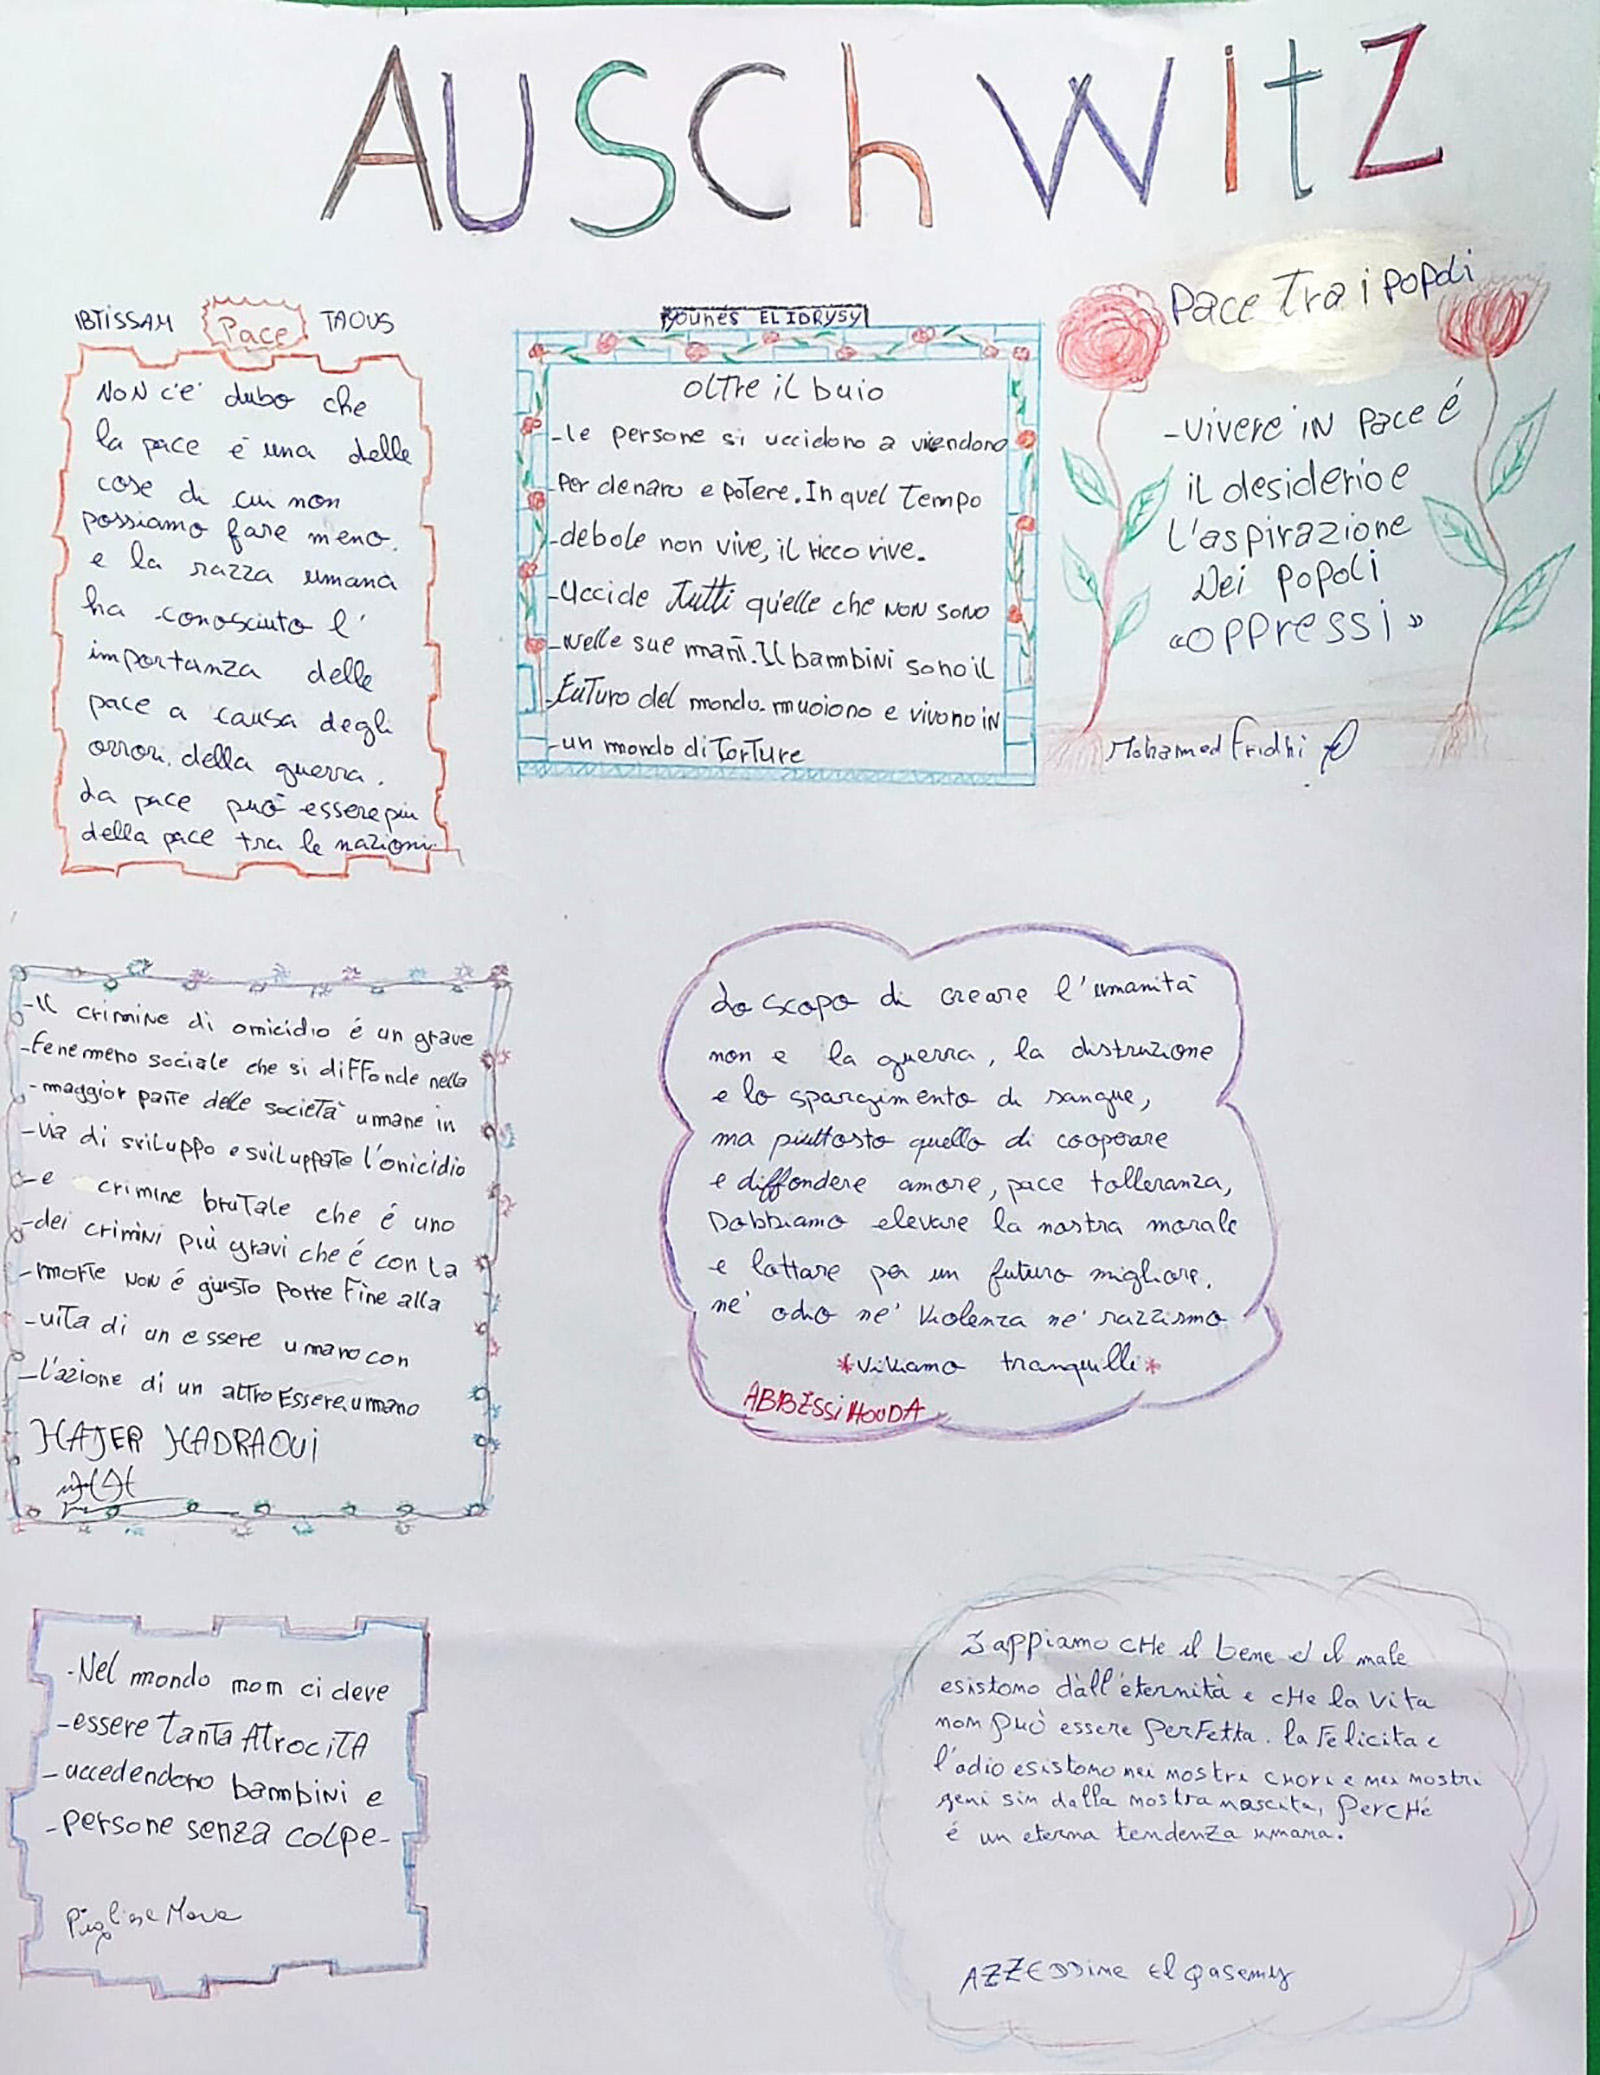 AUSChWitZ
IBTISSAM Pace TAOUS
NON c'e' dubo che
la pace è una delle
cose di cui non
possiamo fare meno.
e la razza umana
ha conosciuto l'
importanza delle
pace a causa degli
orrori della guerra.
La pace può essere piu
della pace tra le nazioni.
Younés EL IDRYSY
Oltre il buio
-le persone si uccidono a viendono
-Per denaro e potere. In quel Tempo
-debole non vive, il ricco vive.
-Uccide Tutti quelle che NON SONO
-Nelle sue mani. Il bambini sono il
-FuTuro del mondo. muoiono e vivono iN
-un mondo di Torture
Pace Tra i popoli
-Vivere iN Pace é
il desiderio e
L'aspirazione
Dei popoli
«oppressi»
Mohamed Fridhi
-IL crimiNe di omicidio é un grave
-Fenemeno sociale che si diFFonde nella
-maggior parte delle società umane in
-via di sviluppo e sviluppate l'onicidio
-e crimine bruTale che é uno
-dei crimiNi più gravi che é con La
-morte NON é giusto porre Fine alla
-vita di un essere umano con
-l'azione di un altro Essere umano
HAJER HADRAOUi
Lo scopo di creare l'umanità
non e la guerra, la distruzione
e lo spargimento di sangue,
ma piuttosto quello di cooperare
e diffondere amore, pace tolleranza,
Dobbiamo elevare la nostra morale
e lottare per un futuro migliore.
ne' odio ne' Violenza ne' razzismo
*Viviamo tranquilli*
ABBESSi HOUDA
-Nel mondo mom ci deve
-essere TanTa AtrociTA
-uccedendono bambini e
-persone senza colpe-
Sappiamo cHe il bene e il male
esistono dall'éternità e cHe la vita
non può essere perFetta. la Felicita e
l'odio esistono nei nostri cuori e nei nostri
geni sin dalla nostra nascita, PercHé
é un eterna tendenza umana.
AZZEDDine El Qasemy